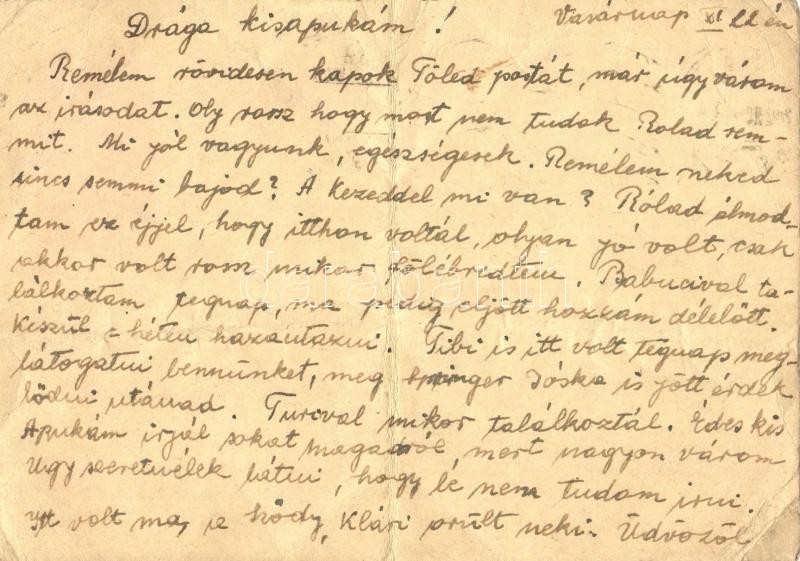 Drága kisapukám! Vasárnap XI 22 én
Remélem rövidesen kapok Tőled postát, már úgy várom
az irásodat. Oly rossz hogy most nem tudok Rolad sem-
mit. Mi jól vagyunk, egészségesek. Remélem neked
sincs semmi bajod? A Kezeddel mi van? Rólad álmod-
tam ez éjjel, hogy itthon voltál, olyan jó volt, csak
akkor volt rossz mikor fölébredtem. Babucival ta-
lálkoztam tegnap, ma pedig eljött hozzám délelőtt.
Készül e héten hazautazni. Tibi is itt volt tegnap meg-
látogatni bennünket, meg Springer Jóska is jött érdek
lődni utánad. Turival mikor találkoztál. Édes kis
Apukám irjál sokat magadról, mert nagyon várom
Úgy szeretnélek látni, hogy lé nem tudom irni.
Itt volt ma, a Ködy, Klári örült neki. Üdvözöl